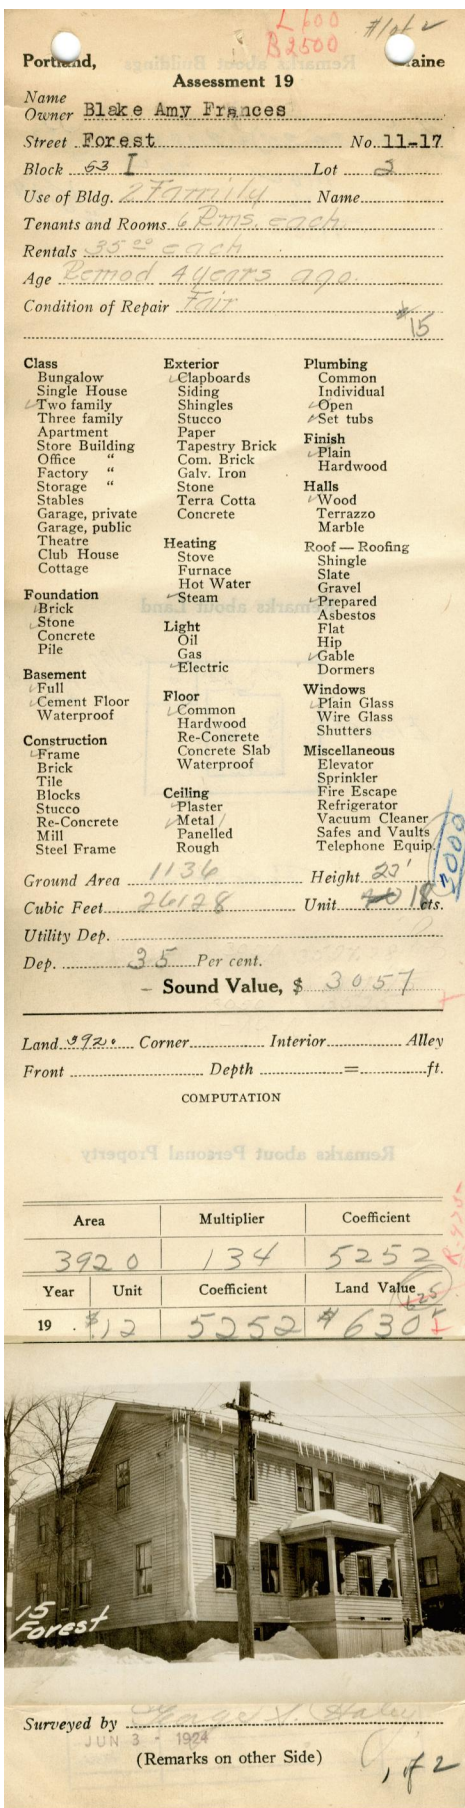 L 600
# 1 of 2
B 2500
Portland, Maine
Assessment 19
Name
Owner Blake Amy Frances
Street Forest No. 11-17
Block 53 I Lot 2
Use of Bldg. 2 Family Name
Tenants and Rooms 6 Rms. each
Rentals 35 00 each
Age Remod 4 years ago.
Condition of Repair Fair
# 15
Class
Bungalow
Single House
Two family
Three family
Apartment
Store Building
Office "
Factory "
Storage "
Stables
Garage, private
Garage, public
Theatre
Club House
Cottage
Foundation
Brick
Stone
Concrete
Pile
Basement
Full
Cement Floor
Waterproof
Construction
Frame
Brick
Tile
Blocks
Stucco
Re-Concrete
Mill
Steel Frame
Exterior
Clapboards
Siding
Shingles
Stucco
Paper
Tapestry Brick
Com. Brick
Galv. Iron
Stone
Terra Cotta
Concrete
Heating
Stove
Furnace
Hot Water
Steam
Light
Oil
Gas
Electric
Floor
Common
Hardwood
Re-Concrete
Concrete Slab
Waterproof
Ceiling
Plaster
Metal
Panelled
Rough
Plumbing
Common
Individual
Open
Set tubs
Finish
Plain
Hardwood
Halls
Wood
Terrazzo
Marble
Roof — Roofing
Shingle
Slate
Gravel
Prepared
Asbestos
Flat
Hip
Gable
Dormers
Windows
Plain Glass
Wire Glass
Shutters
Miscellaneous
Elevator
Sprinkler
Fire Escape
Refrigerator
Vacuum Cleaner
Safes and Vaults
Telephone Equip.
2000
Ground Area 1136 Height 23'
Cubic Feet 26128 Unit 18 cts.
Utility Dep.
Dep. 35 Per cent.
Sound Value, $ 3057
Land 3920 Corner Interior Alley
Front Depth = ft.
COMPUTATION
Remarks about Personal Property
Area Multiplier Coefficient
3920 134 5252
Year Unit Coefficient Land Value
625
19 . $.12 5252 $ 630
15
Forest
Surveyed by
JUN 3 - 1924
(Remarks on other Side)
1 of 2